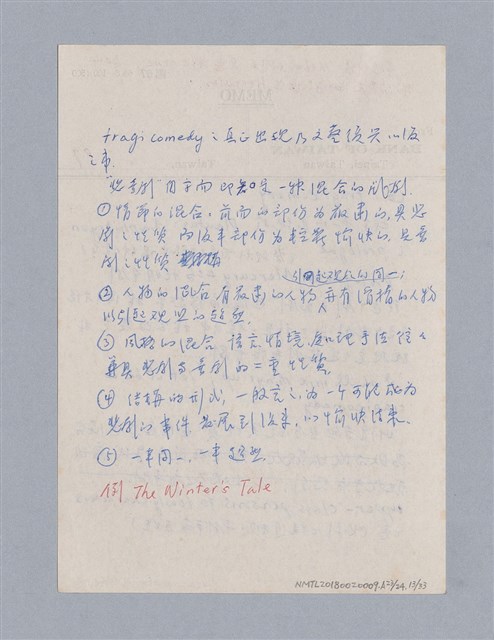 tragicomedy:真正出現乃文藝復興以後
之事.
"悲喜劇"用字面即知是一種混合的戲劇.
①情節的混合.前面的部份為嚴肅的,具悲
劇之性質 而後半部份為輕鬆愉快的,是喜
劇之性質
引起觀眾的同一;
②人物的混合 有嚴肅的人物 並有滑稽的人物
以引起观众的超然.
③風格的混合 語言情境,處理手法往往
兼具悲劇与喜劇的二重性質.
④結構的形式,一般言之,為一个可能成為
悲劇的事件 發展到後來,以愉快結束.
⑤一半同一.一半超然.
例 The Winter's Tale
NMTL20180020009.5-2/24.13/33